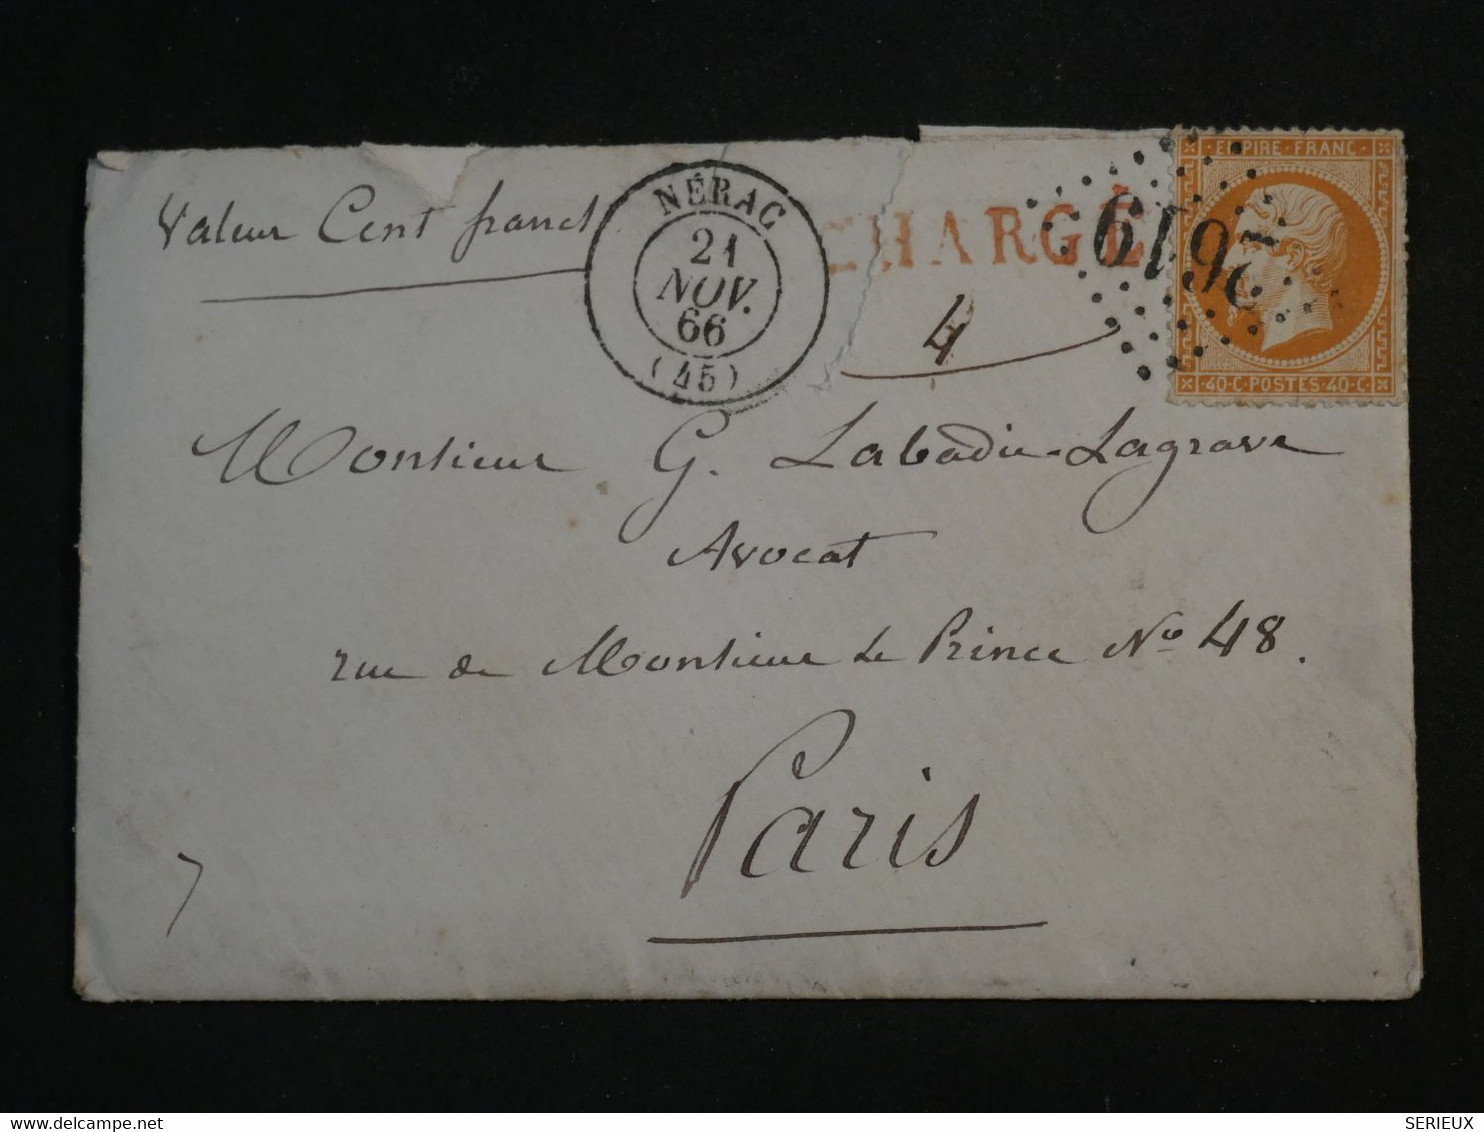 Valeur Cent francs
NÉRAC
21
NOV.
66
(45)
CHARGÉ
4
2619
EMPIRE FRANC
40·C·POSTES·40·C
Monsieur G. Labadie-Lagrave
Avocat
rue de Monsieur Le Prince No 48.
Paris
7
delcampe.net
SERIEUX